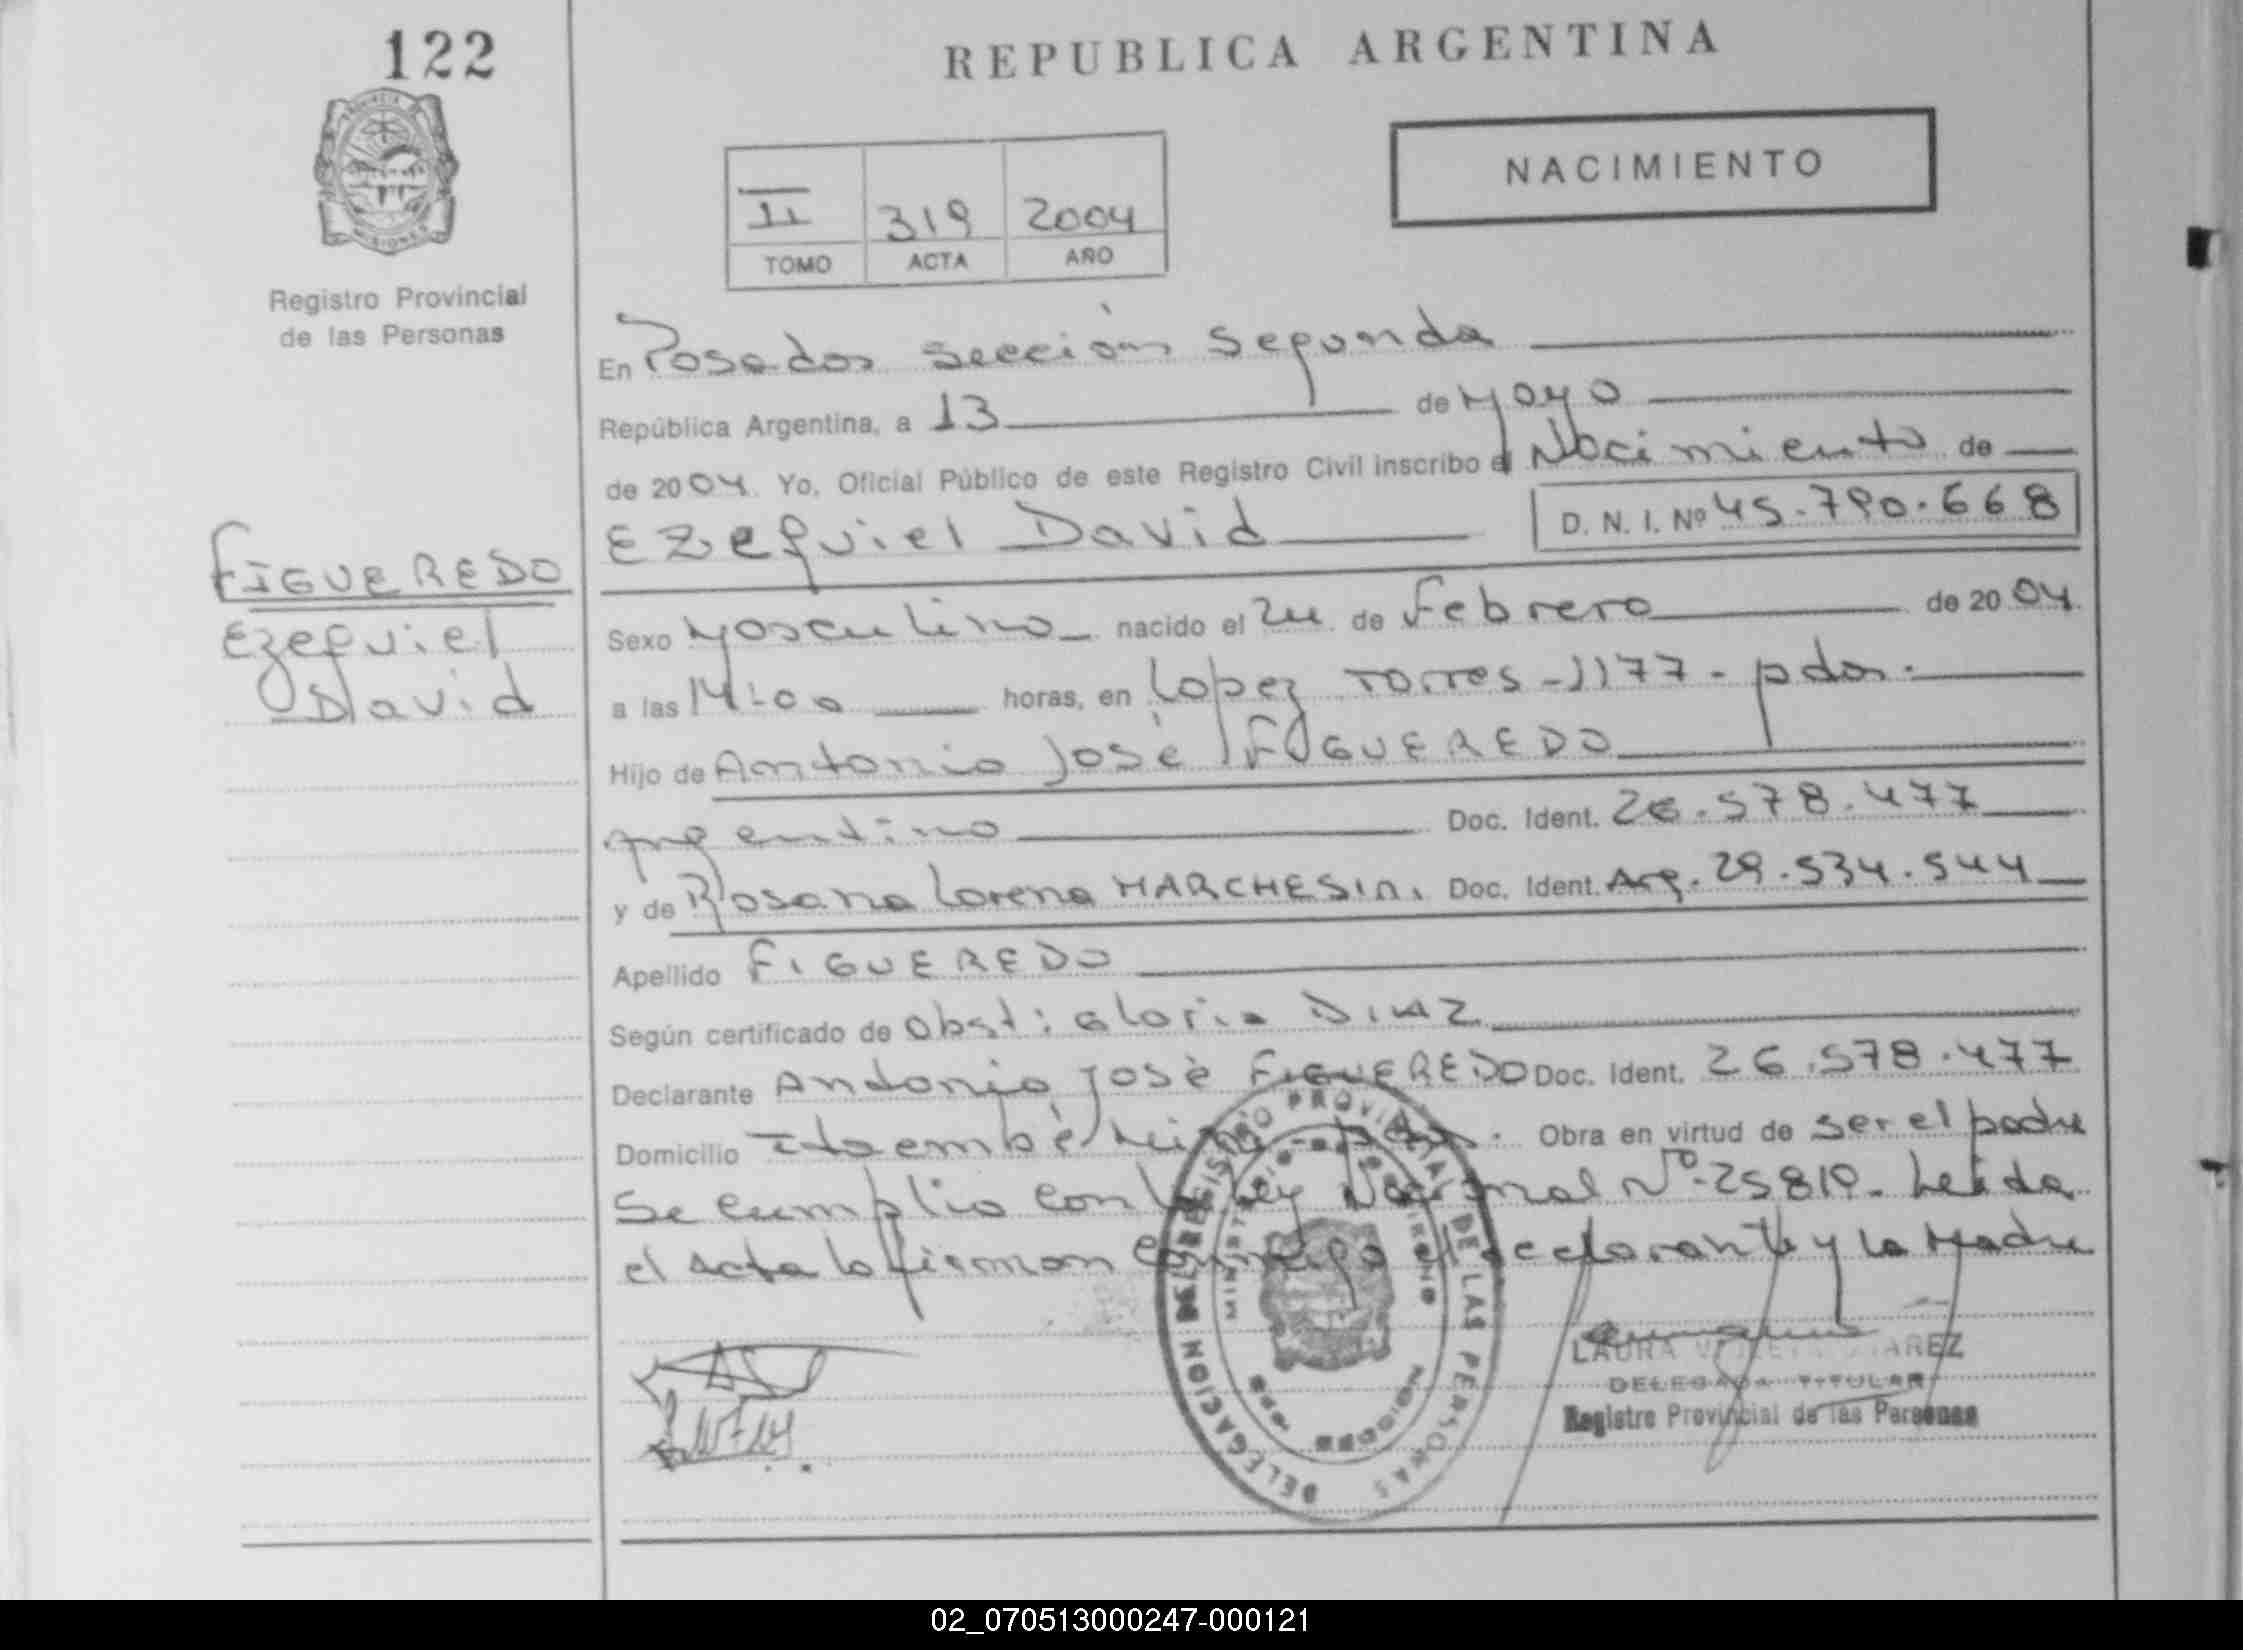 122
REPUBLICA ARGENTINA
PROVINCIA DE
MISIONES
NACIMIENTO
II 319 2004
TOMO ACTA AÑO
Registro Provincial
de las Personas
En Posadas sección segunda
República Argentina, a 13 de Mayo
de 2004. Yo, Oficial Público de este Registro Civil inscribo el Nacimiento de
Ezequiel David D. N. I. Nº 45.790.668
FIGUEREDO
Ezequiel
David
Sexo Masculino nacido el 24 de Febrero de 2004.
a las 14-00 horas, en Lopez Torres-1177- pdas.
Hijo de Antonio José FIGUEREDO
argentino Doc. Ident. 26.578.477
y de Rosana Lorena MARCHESIN. Doc. Ident. Arg. 29.534.544
Apellido FIGUEREDO
Según certificado de Obst: Gloria DIAZ
Declarante Antonio José FIGUEREDO Doc. Ident. 26.578.477
Domicilio Itaembé Miní - pdas. Obra en virtud de ser el padre
Se cumplio con la ley Nacional Nº 25819. Leída
el acta la firman conmigo el declarante y la Madre
DELEGACION DEL REGISTRO PROVINCIAL DE LAS PERSONAS
MINISTERIO DE GOBIERNO
MISIONES
LAURA
DELEGADA TITULAR
Registro Provincial de las Personas
02_070513000247-000121